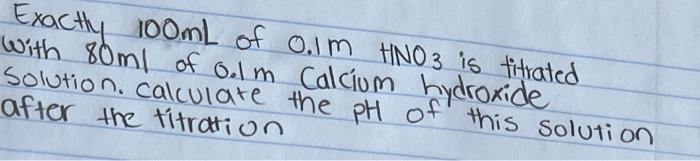 Exactly 100mL of 0.1m HNO3 is titrated
with 80ml of 0.1m Calcium hydroxide
Solution. calculate the pH of this solution
after the titration